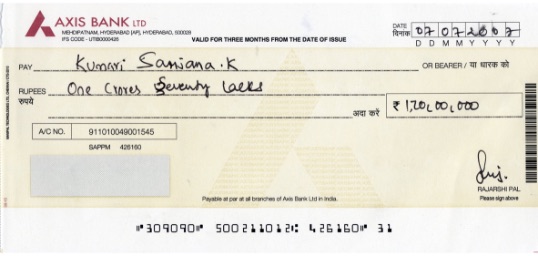 AXIS BANK LTD
MEHDIPATNAM, HYDERABAD [AP], HYDERABAD, 500028
IFS CODE - UTIB0000426
VALID FOR THREE MONTHS FROM THE DATE OF ISSUE
DATE दिनांक 07072007
D D M M Y Y Y Y
PAY Kumari Sanjana.K OR BEARER / या धारक को
RUPEES रुपये One Crores Seventy Lacks
अदा करें ₹ 1,70,00,000
A/C NO. 911010049001545
SAPPM 426160
RAJARSHI PAL
Please sign above
Payable at par at all branches of Axis Bank Ltd in India.
"309090" 500211012: 426160" 31